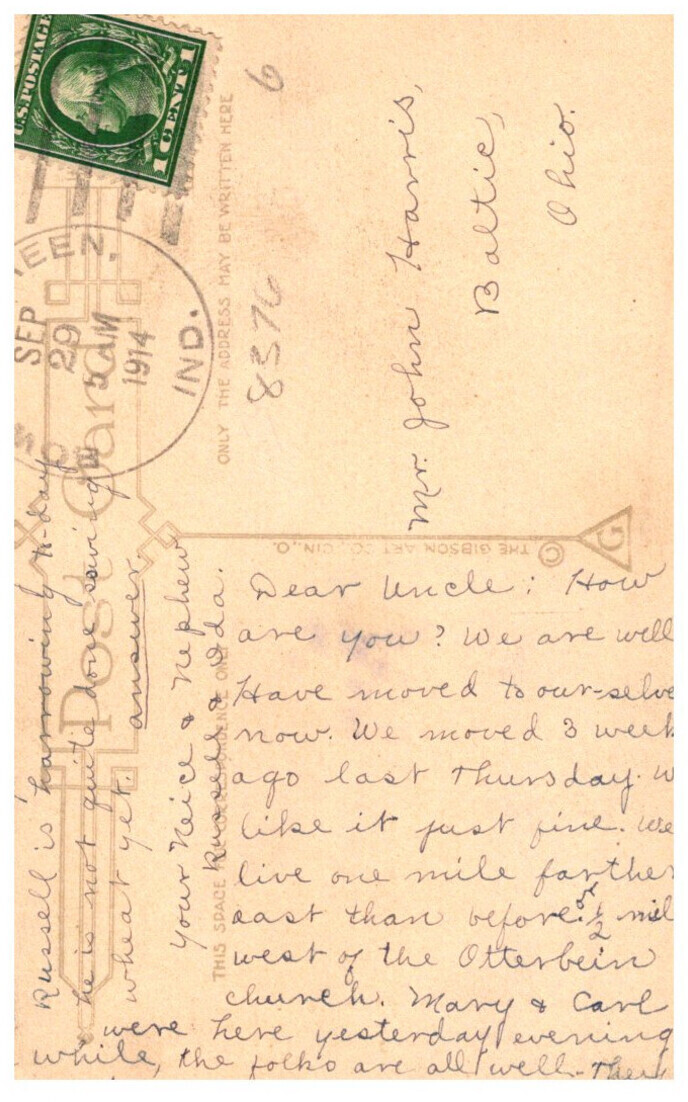 U.S. POSTAGE
1 CENT 1
EEN,
SEP
29
5 AM
1914
IND.
Post Card
ONLY THE ADDRESS MAY BE WRITTEN HERE
6
8376
Mr. John Harris,
Baltic,
Ohio.
© THE GIBSON ART CO., CIN., O.
G
THIS SPACE CORRESPONDENCE ONLY
Dear Uncle: How
are you? We are well
Have moved to our-selve
now. We moved 3 week
ago last Thursday. W
like it just fine. We
live one mile farther
east than before. 1/2 mil
west of the Otterbein
church. Mary & Carl
were here yesterday evening
while, the folks are all well. They
Russell is harrowing to-day
he is not quite done sowing
wheat yet.
answer.
Your Neice & Nephew
Russell & Ida.